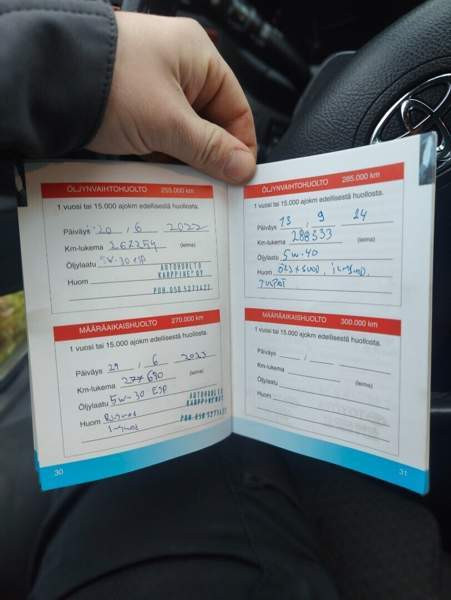 ÖLJYNVAIHTOHUOLTO 255.000 km
1 vuosi tai 15.000 ajokm edellisestä huollosta.
Päiväys 20 . 6 . 2022
Km-lukema 262254 (leima)
Öljylaatu 5W-30 ESP
AUTOHUOLTO
KARPPINEN OY
Huom
PUH. 050 5271427
MÄÄRÄAIKAISHUOLTO 270.000 km
1 vuosi tai 15.000 ajokm edellisestä huollosta.
Päiväys 29 . 6 . 2023
Km-lukema 277690 (leima)
Öljylaatu 5W-30 ESP
AUTOHUOLTO
KARPPINEN OY
Huom
PUH. 050 5271427
30
ÖLJYNVAIHTOHUOLTO 285.000 km
1 vuosi tai 15.000 ajokm edellisestä huollosta.
Päiväys 13 . 9 . 24
Km-lukema 288333 (leima)
Öljylaatu 5W-40
Huom
TULPAT
MÄÄRÄAIKAISHUOLTO 300.000 km
1 vuosi tai 15.000 ajokm edellisestä huollosta.
Päiväys
Km-lukema (leima)
Öljylaatu
Huom
31